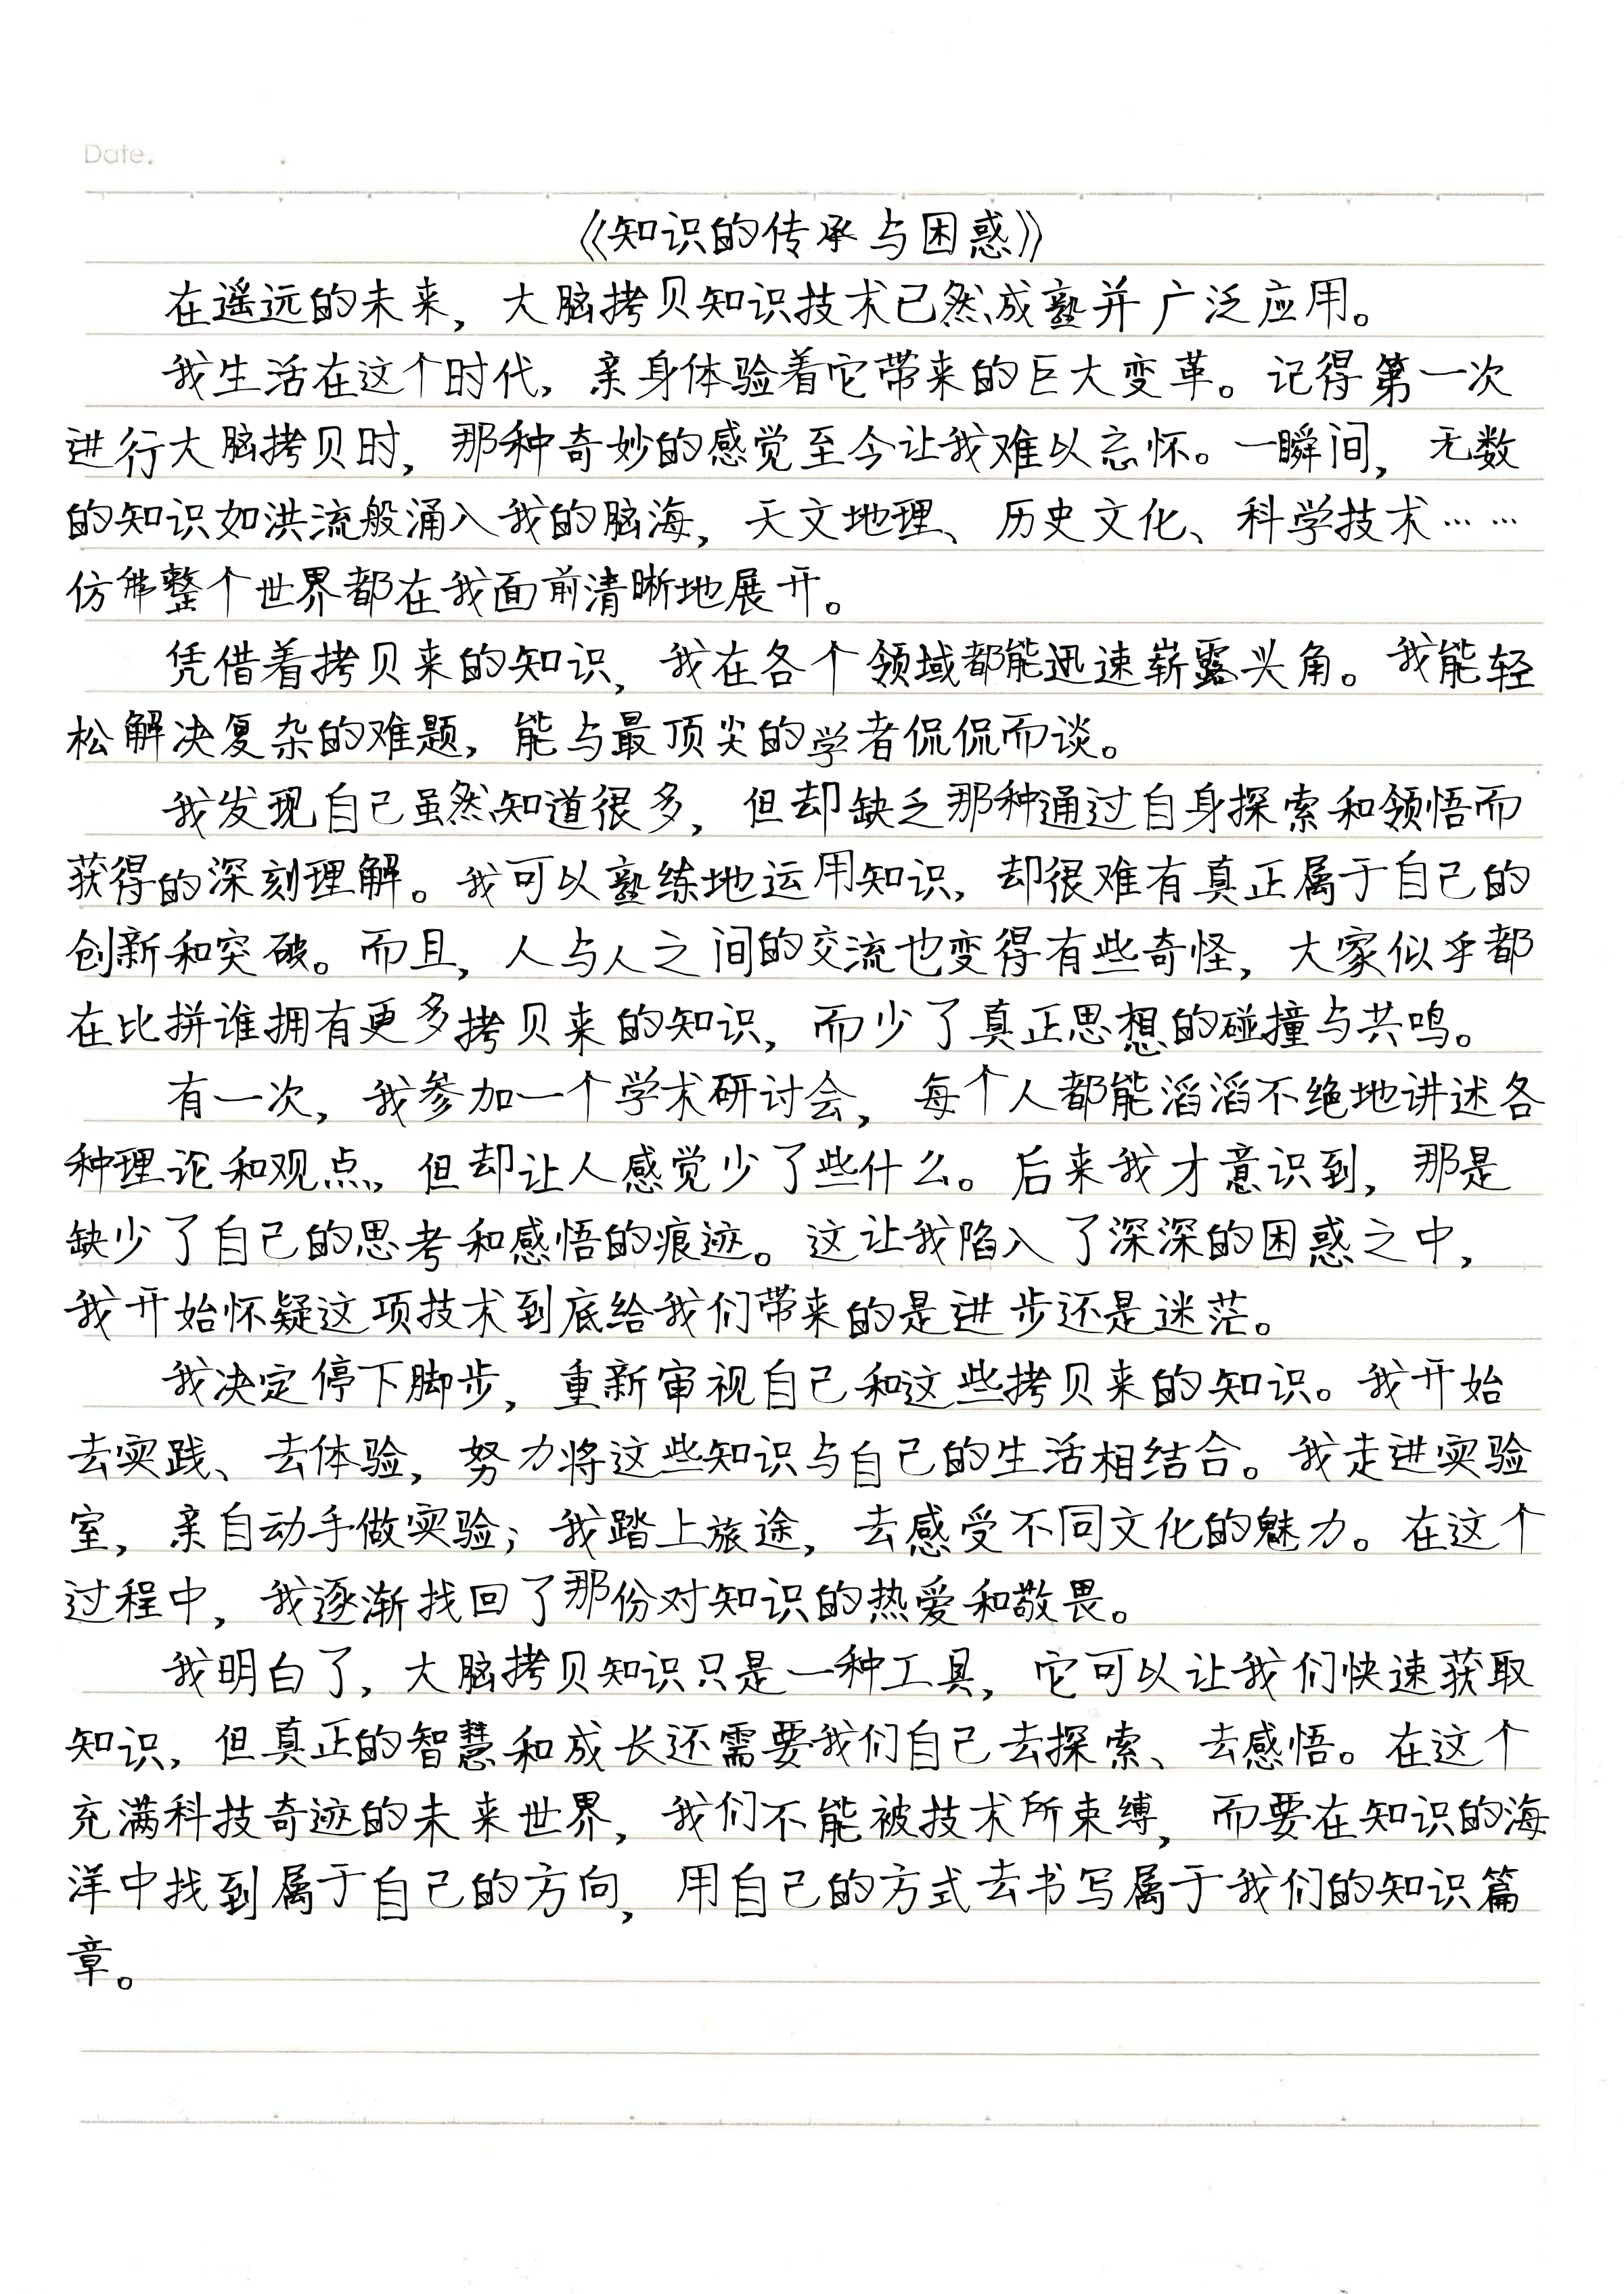 Date.
《知识的传承与困惑》
在遥远的未来，大脑拷贝知识技术已然成熟并广泛应用。
我生活在这个时代，亲身体验着它带来的巨大变革。记得第一次
进行大脑拷贝时，那种奇妙的感觉至今让我难以忘怀。一瞬间，无数
的知识如洪流般涌入我的脑海，天文地理、历史文化、科学技术……
仿佛整个世界都在我面前清晰地展开。
凭借着拷贝来的知识，我在各个领域都能迅速崭露头角。我能轻
松解决复杂的难题，能与最顶尖的学者侃侃而谈。
我发现自己虽然知道很多，但却缺乏那种通过自身探索和领悟而
获得的深刻理解。我可以熟练地运用知识，却很难有真正属于自己的
创新和突破。而且，人与人之间的交流也变得有些奇怪，大家似乎都
在比拼谁拥有更多拷贝来的知识，而少了真正思想的碰撞与共鸣。
有一次，我参加一个学术研讨会，每个人都能滔滔不绝地讲述各
种理论和观点，但却让人感觉少了些什么。后来我才意识到，那是
缺少了自己的思考和感悟的痕迹。这让我陷入了深深的困惑之中，
我开始怀疑这项技术到底给我们带来的是进步还是迷茫。
我决定停下脚步，重新审视自己和这些拷贝来的知识。我开始
去实践、去体验，努力将这些知识与自己的生活相结合。我走进实验
室，亲自动手做实验；我踏上旅途，去感受不同文化的魅力。在这个
过程中，我逐渐找回了那份对知识的热爱和敬畏。
我明白了，大脑拷贝知识只是一种工具，它可以让我们快速获取
知识，但真正的智慧和成长还需要我们自己去探索、去感悟。在这个
充满科技奇迹的未来世界，我们不能被技术所束缚，而要在知识的海
洋中找到属于自己的方向，用自己的方式去书写属于我们的知识篇
章。